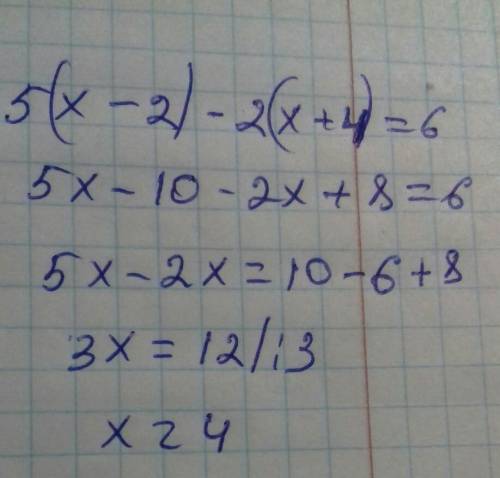 5(x - 2) - 2(x + 4) = 6
5x - 10 - 2x + 8 = 6
5x - 2x = 10 - 6 + 8
3x = 12 / : 3
x = 4